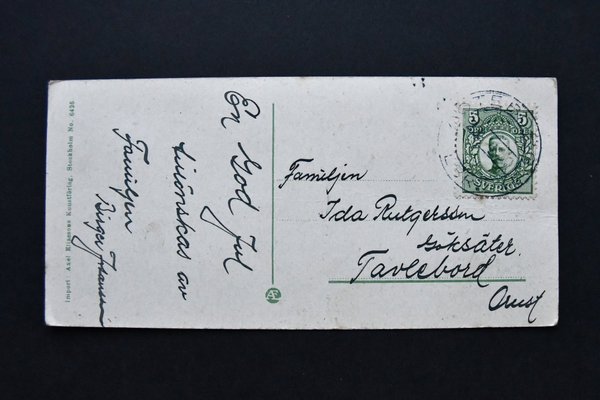 En God Jul
tillönskas av
Familjen
Birger Johansson
Familjen
Ida Rutgersson
Göksäter.
Tavlebord
Orust
5 5
SVERIGE
Import: Axel Eliassons Konstförlag, Stockholm No. 6426